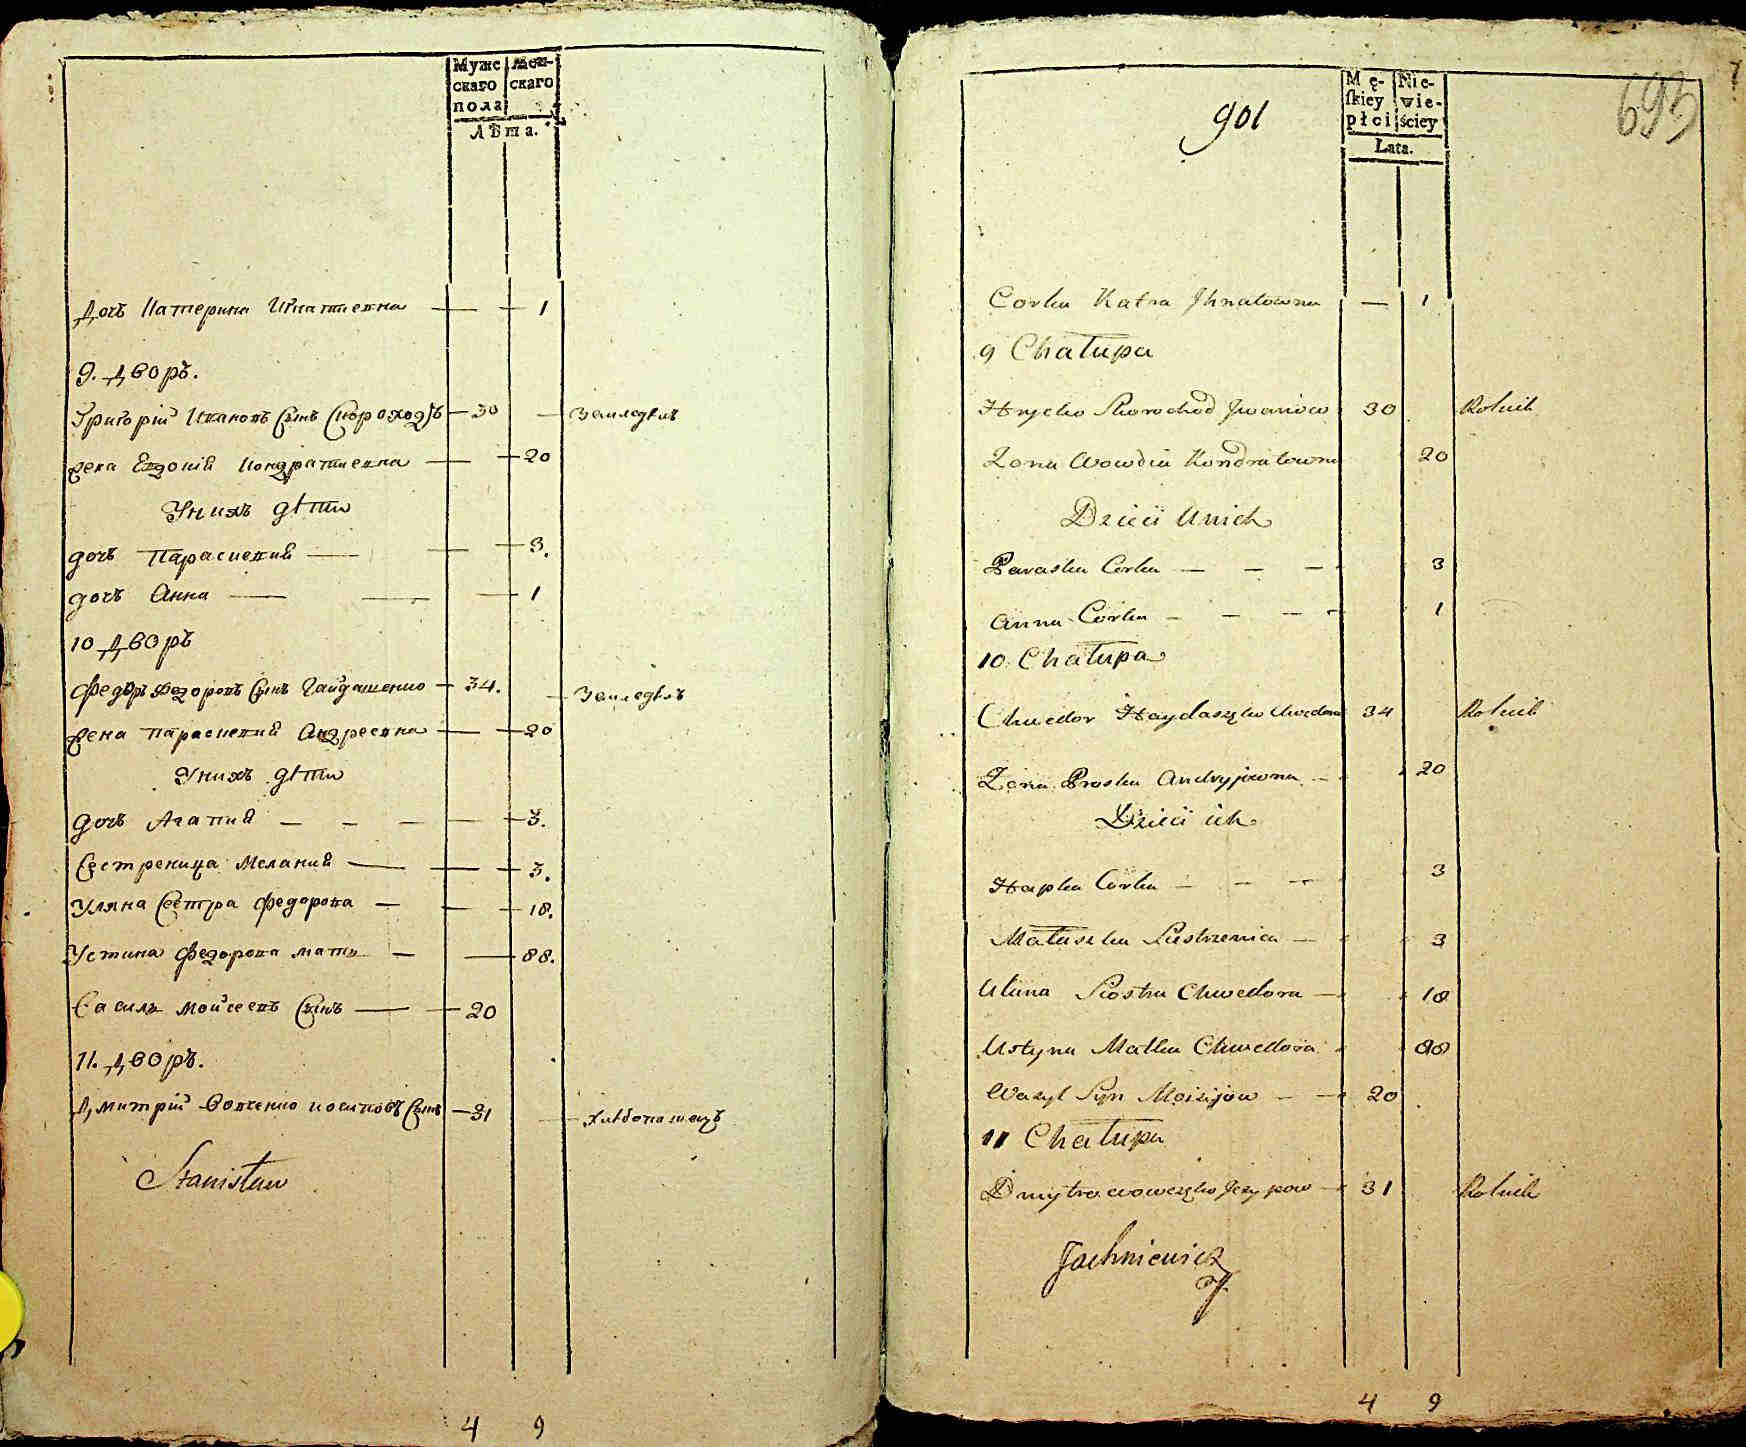 Муже
скаго
пола
Жен-
скаго
Лѣта.
Дочь Катерина Игнатиевна — — 1
9. Дворъ.
Григорій Ивановъ Сынъ Скороходъ — 30 — Земледель
жена Евдокія Кондратиевна — — 20
У нихъ дѣти
дочь Параскевия — — 3.
дочь Анна — — — 1
10 Дворъ
Федоръ Федоровъ Сынъ Гайдашенко — 34. — Земледель
жена Параскевия Андреевна — — 20
У нихъ дѣти
дочь Агапия — — — — 3.
Сестреница Мелания — — 3.
Уляна Сестра Федорова — — 18.
Устина Федорова мать — — 88.
Василь Мойсеевъ Сынъ — — 20
11. Дворъ.
Димитрій Вовченко Осиповъ Сынъ — 31 — Хлѣбопашецъ
Stanisław
4 9
901
693
Mę-
skiey
płci
Nie-
wie-
ściey
Lata.
Corka Katra Jhnatowna — 1
9 Chałupa
Hrycko Skorochod Jwanow 30 Rolnik
Zona Wowdia Kondratowna 20
Dzieci Unich
Paraska Corka — — — 3
Anna Corka — — — 1
10 Chałupa
Chwedor Haydaszko Chwedorow 34 Rolnik
Zona Proska Andryjowna — 20
Dzieci ich
Hapka Corka — — — 3
Małaszka Siestrzenica — 3
Ulana Siostra Chwedora — 18
Ustyna Matka Chwedora 88
Wasyl Syn Moisijow — — 20
11 Chałupa
Dmytro Wowczko Jozypow — 31 Rolnik
Jachniewicz
4 9